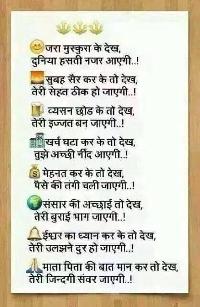 जरा मुस्कुरा के देख,
दुनिया हसती नजर आएगी..!
सुबह सैर कर के तो देख,
तेरी सेहत ठीक हो जाएगी..!
व्यसन छोड के तो देख,
तेरी इज्जत बन जाएगी..!
खर्च घटा कर के तो देख,
तुझे अच्छी नींद आएगी..!
मेहनत कर के तो देख,
पैसे की तंगी चली जाएगी..!
संसार की अच्छाई तो देख,
तेरी बुराई भाग जाएगी..!
ईश्वर का ध्यान कर के तो देख,
तेरी उलझने दुर हो जाएगी..!
माता पिता की बात मान कर तो देख,
तेरी जिन्दगी संवर जाएगी..!